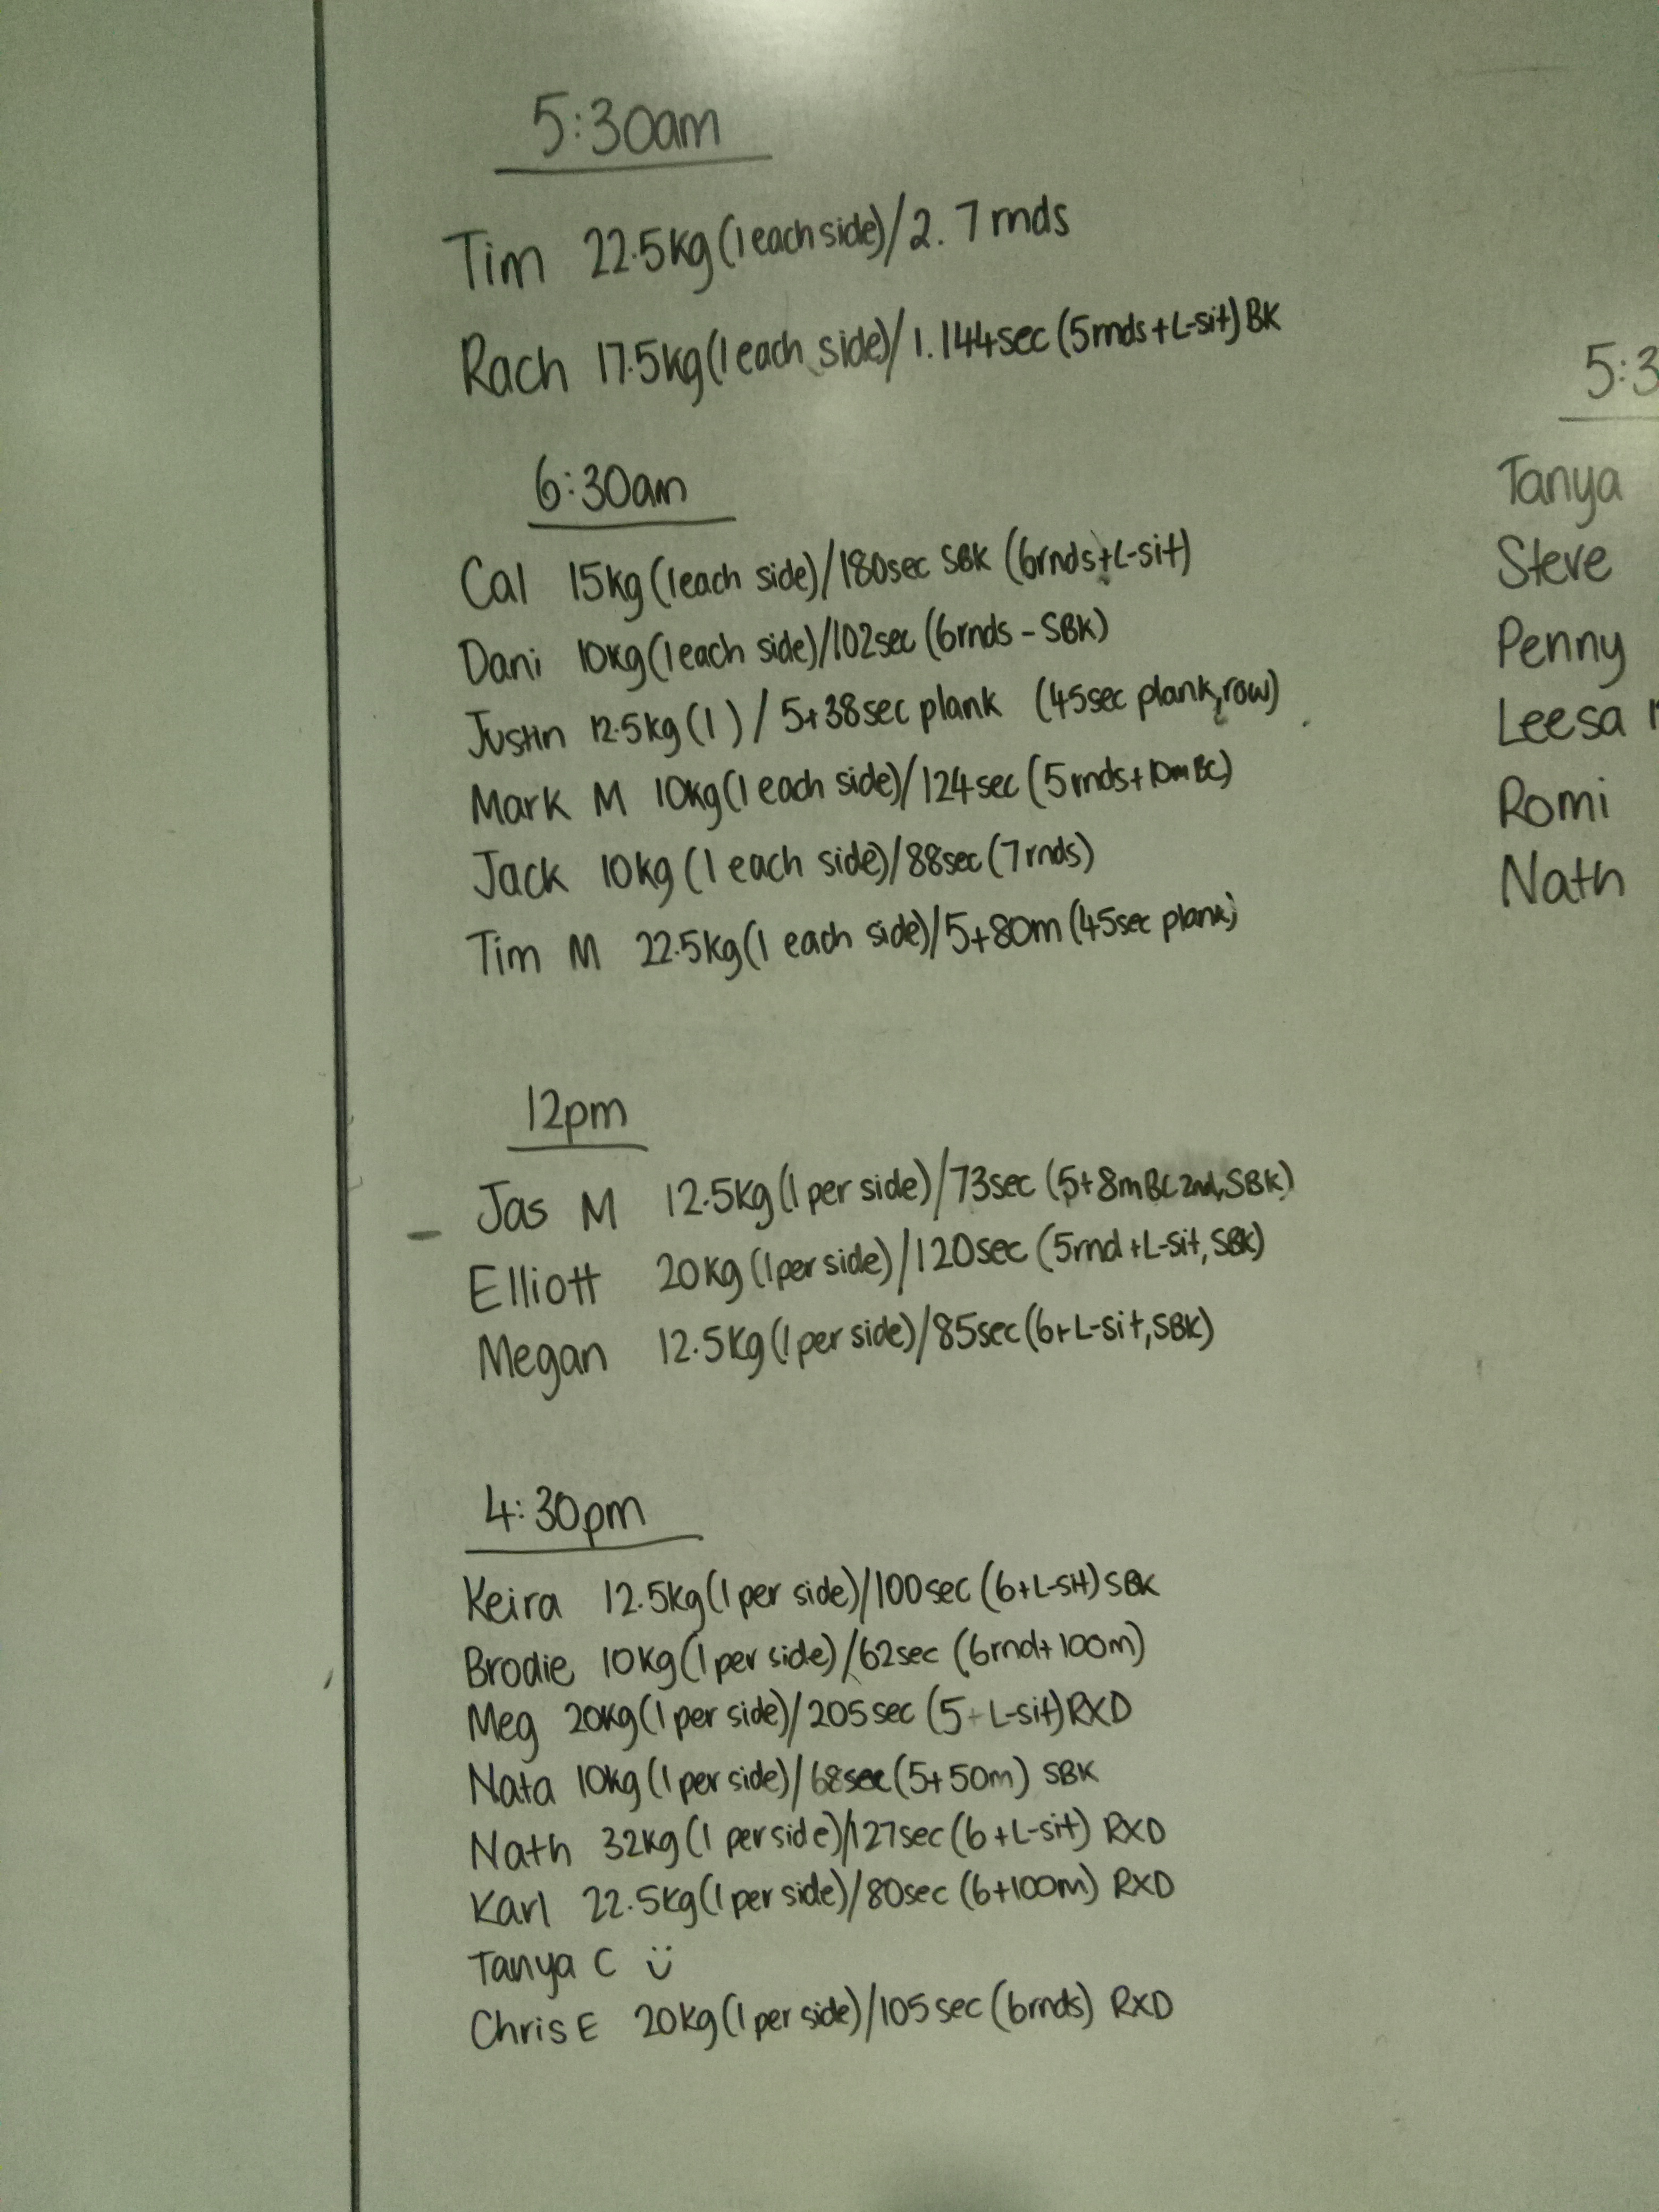 5:30am
Tim 22.5kg (1 each side)/2. 7 rnds
Rach 17.5kg (1 each side)/1. 144sec (5rnds+L-sit) BK
6:30am
Cal 15kg (1 each side)/180sec SBK (6rnds+L-sit)
Dani 10kg (1 each side)/102sec (6rnds - SBK)
Justin 12.5kg (1) / 5+38sec plank (45sec plank, row)
Mark M 10kg (1 each side)/124sec (5rnds+10m BC)
Jack 10kg (1 each side)/88sec (7rnds)
Tim M 22.5kg (1 each side)/5+80m (45sec plank)
12pm
Jas M 12.5kg (1 per side)/73sec (5+8m BC 2nd, SBK)
Elliott 20kg (1 per side)/120sec (5rnd+L-sit, SBK)
Megan 12.5kg (1 per side)/85sec (6+L-sit, SBK)
4:30pm
Keira 12.5kg (1 per side)/100sec (6+L-sit) SBK
Brodie 10kg (1 per side)/62sec (6rnd+100m)
Meg 20kg (1 per side)/205sec (5+L-sit) RXD
Nata 10kg (1 per side)/68sec (5+50m) SBK
Nath 32kg (1 per side)/127sec (6+L-sit) RXD
Karl 22.5kg (1 per side)/80sec (6+100m) RXD
Tanya C ü
Chris E 20kg (1 per side)/105sec (6rnds) RXD
5:3
Tanya
Steve
Penny
Leesa 1
Romi
Nath